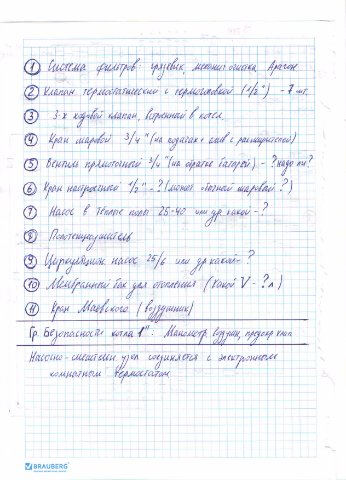 1 Система фильтров: грязевик, механич очистка, Арагон
2 Клапан термостатический с термоголовкой (1/2") - 7 шт.
3 3-х ходовой клапан, встроенной в котел
4 Кран шаровой 3/4" (на подпитки + слив с расширителей)
5 Вентиль прямоточной 3/4" (на обратке батарей) - ? надо ли?
6 Кран настроечной 1/2" - ? (может обычной шаровой?)
7 Насос в теплые полы 25-40 или др какой - ?
8 Полотенцесушитель
9 Циркуляцион. насос 25/6 или др какой - ?
10 Мембранной бак для отопления (какой V - ? л)
11 Кран Маевского (воздушник)
Гр. Безопасности котла 1": Манометр, воздушн, предохр клап
Насосно-смесительн узел соединяется с электронным
комнатным термостатом
BRAUBERG